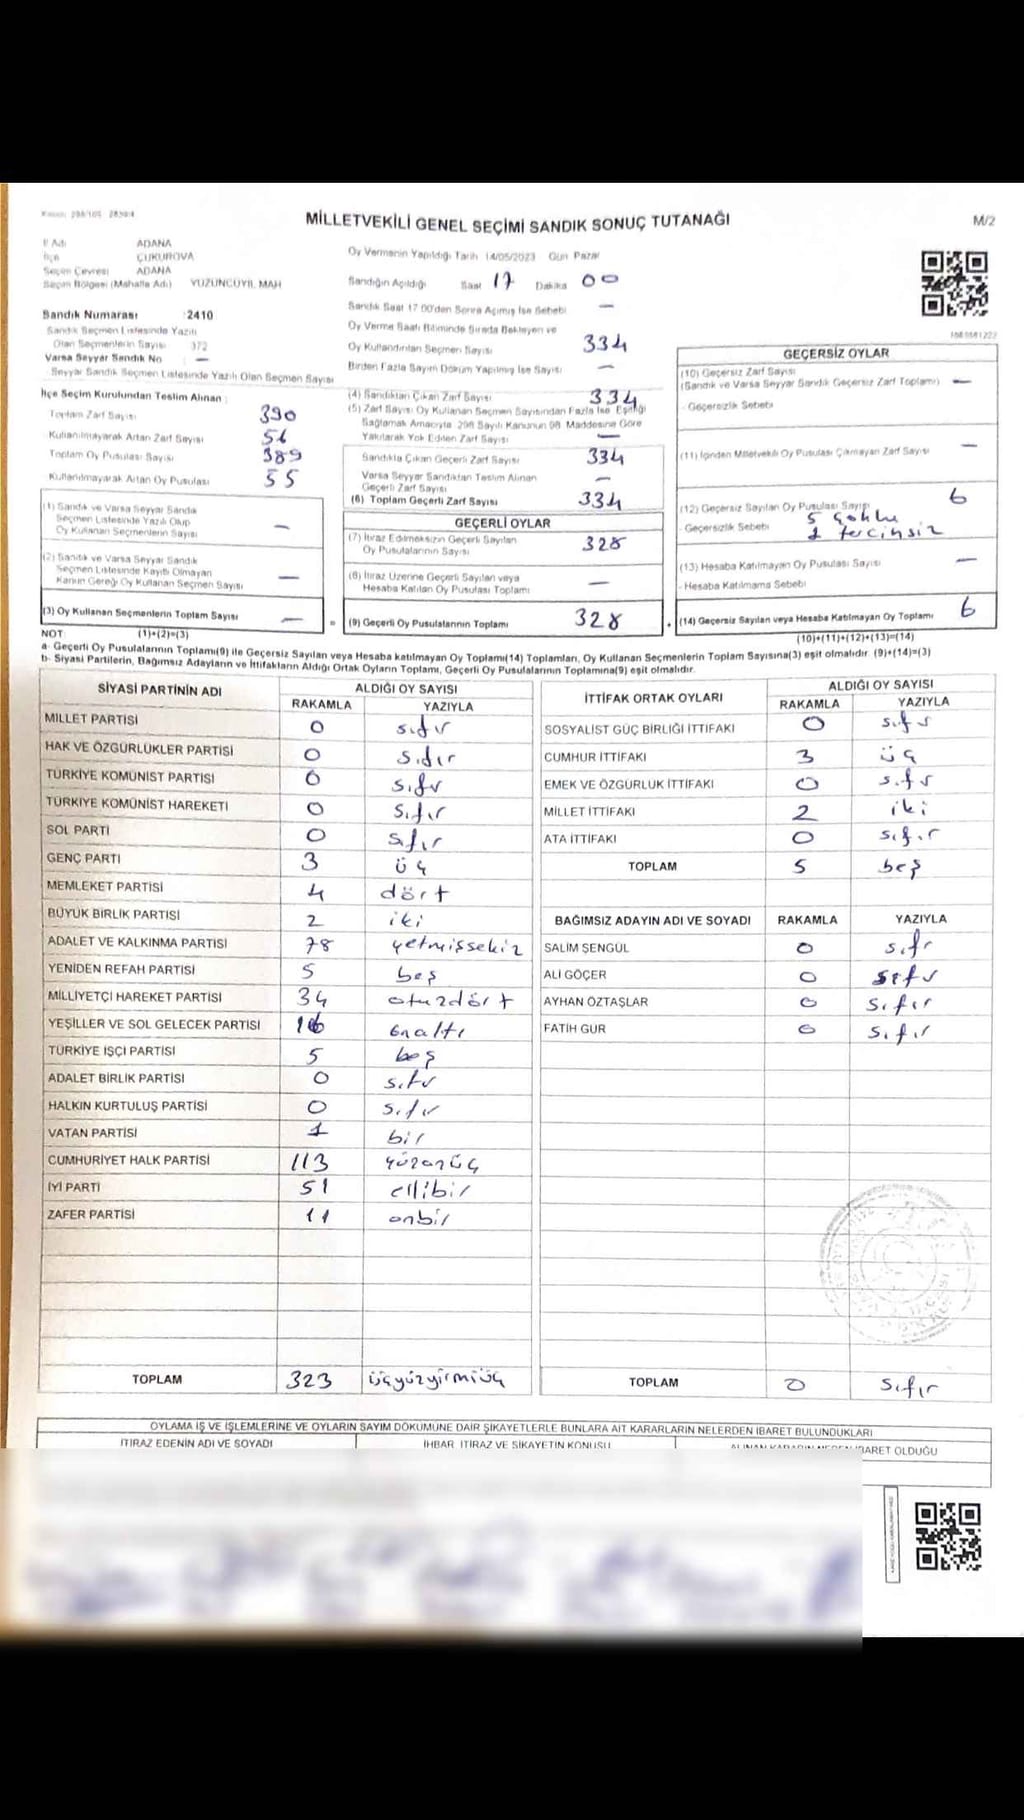 MİLLETVEKİLİ GENEL SEÇİMİ SANDIK SONUÇ TUTANAĞI
M/2
İl Adı ADANA
İlçe ÇUKUROVA
Seçim Çevresi ADANA
Seçim Bölgesi (Mahalle Adı) YÜZÜNCÜYIL MAH
Sandık Numarası :2410
Sandık Seçmen Listesinde Yazılı
Olan Seçmenlerin Sayısı 372
Varsa Seyyar Sandık No —
Seyyar Sandık Seçmen Listesinde Yazılı Olan Seçmen Sayısı
İlçe Seçim Kurulundan Teslim Alınan :
Toplam Zarf Sayısı 390
Kullanılmayarak Artan Zarf Sayısı 56
Toplam Oy Pusulası Sayısı 389
Kullanılmayarak Artan Oy Pusulası 55
(1) Sandık ve Varsa Seyyar Sandık
Seçmen Listesinde Yazılı Olup
Oy Kullanan Seçmenlerin Sayısı —
(2) Sandık ve Varsa Seyyar Sandık
Seçmen Listesinde Kayıtlı Olmayan
Kanun Gereği Oy Kullanan Seçmen Sayısı —
(3) Oy Kullanan Seçmenlerin Toplam Sayısı —
(1)+(2)=(3)
Oy Vermenin Yapıldığı Tarih 14/05/2023 Gün Pazar
Sandığın Açıldığı Saat 17 Dakika 00
Sandık Saat 17:00'den Sonra Açılmış İse Sebebi —
Oy Verme Saati Bitiminde Sırada Bekleyen ve
Oy Kullandırılan Seçmen Sayısı 334
Birden Fazla Sayım Döküm Yapılmış İse Sayısı —
(4) Sandıktan Çıkan Zarf Sayısı 334
(5) Zarf Sayısı Oy Kullanan Seçmen Sayısından Fazla İse, Eşitliği
Sağlamak Amacıyla 298 Sayılı Kanunun 98. Maddesine Göre
Yakılarak Yok Edilen Zarf Sayısı —
Sandıkta Çıkan Geçerli Zarf Sayısı 334
Varsa Seyyar Sandıktan Teslim Alınan
Geçerli Zarf Sayısı —
(6) Toplam Geçerli Zarf Sayısı 334
GEÇERLİ OYLAR
(7) İtiraz Edilmeksizin Geçerli Sayılan
Oy Pusulalarının Sayısı 328
(8) İtiraz Üzerine Geçerli Sayılan veya
Hesaba Katılan Oy Pusulası Toplamı —
(9) Geçerli Oy Pusulalarının Toplamı 328
GEÇERSİZ OYLAR
(10) Geçersiz Zarf Sayısı
(Sandık ve Varsa Seyyar Sandık Geçersiz Zarf Toplamı) —
- Geçersizlik Sebebi
(11) İçinden Milletvekili Oy Pusulası Çıkmayan Zarf Sayısı —
(12) Geçersiz Sayılan Oy Pusulası Sayısı 6
- Geçersizlik Sebebi 5 çoklu
1 tercihsiz
(13) Hesaba Katılmayan Oy Pusulası Sayısı —
- Hesaba Katılmama Sebebi
(14) Geçersiz Sayılan veya Hesaba Katılmayan Oy Toplamı 6
(10)+(11)+(12)+(13)=(14)
NOT:
a- Geçerli Oy Pusulalarının Toplamı(9) ile Geçersiz Sayılan veya Hesaba katılmayan Oy Toplamı(14) Toplamları, Oy Kullanan Seçmenlerin Toplam Sayısına(3) eşit olmalıdır. (9)+(14)=(3)
b- Siyasi Partilerin, Bağımsız Adayların ve İttifakların Aldığı Ortak Oyların Toplamı, Geçerli Oy Pusulalarının Toplamına(9) eşit olmalıdır.
SİYASİ PARTİNİN ADI ALDIĞI OY SAYISI
RAKAMLA YAZIYLA
MİLLET PARTİSİ 0 sıfır
HAK VE ÖZGÜRLÜKLER PARTİSİ 0 sıfır
TÜRKİYE KOMÜNİST PARTİSİ 0 sıfır
TÜRKİYE KOMÜNİST HAREKETİ 0 sıfır
SOL PARTİ 0 sıfır
GENÇ PARTİ 3 üç
MEMLEKET PARTİSİ 4 dört
BÜYÜK BİRLİK PARTİSİ 2 iki
ADALET VE KALKINMA PARTİSİ 78 yetmişsekiz
YENİDEN REFAH PARTİSİ 5 beş
MİLLİYETÇİ HAREKET PARTİSİ 34 otuzdört
YEŞİLLER VE SOL GELECEK PARTİSİ 16 onaltı
TÜRKİYE İŞÇİ PARTİSİ 5 beş
ADALET BİRLİK PARTİSİ 0 sıfır
HALKIN KURTULUŞ PARTİSİ 0 sıfır
VATAN PARTİSİ 1 bir
CUMHURİYET HALK PARTİSİ 113 yüzonüç
İYİ PARTİ 51 ellibir
ZAFER PARTİSİ 11 onbir
TOPLAM 323 üçyüzyirmiüç
İTTİFAK ORTAK OYLARI ALDIĞI OY SAYISI
RAKAMLA YAZIYLA
SOSYALİST GÜÇ BİRLİĞİ İTTİFAKI 0 sıfır
CUMHUR İTTİFAKI 3 üç
EMEK VE ÖZGÜRLÜK İTTİFAKI 0 sıfır
MİLLET İTTİFAKI 2 iki
ATA İTTİFAKI 0 sıfır
TOPLAM 5 beş
BAĞIMSIZ ADAYIN ADI VE SOYADI RAKAMLA YAZIYLA
SALİM ŞENGÜL 0 sıfır
ALİ GÖÇER 0 sıfır
AYHAN ÖZTAŞLAR 0 sıfır
FATİH GÜR 0 sıfır
TOPLAM 0 sıfır
OYLAMA İŞ VE İŞLEMLERİNE VE OYLARIN SAYIM DÖKÜMÜNE DAİR ŞİKAYETLERLE BUNLARA AİT KARARLARIN NELERDEN İBARET BULUNDUKLARI
İTİRAZ EDENİN ADI VE SOYADI İHBAR, İTİRAZ VE ŞİKAYETİN KONUSU ALINAN KARARIN NEDEN İBARET OLDUĞU